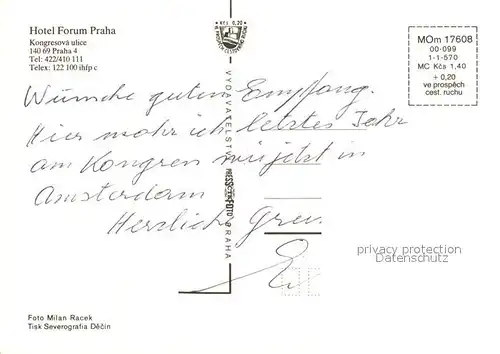 Hotel Forum Praha
Kongresová ulice
140 69 Praha 4
Tel: 422/410 111
Telex: 122 100 ihfp c
Kčs 0,20
VE PROSPĚCH CESTOVNÍHO RUCHU
MOm 17608
00-099
1-1-570
MC Kčs 1,40
+ 0,20
ve prospěch
cest. ruchu
VYDAVATELSTVÍ PRESSFOTO PRAHA
Wünsche guten Empfang.
Hier wohr ich letztes Jahr
am Kongress wie jetzt in
Amsterdam
Herzliche
privacy protection
Datenschutz
Foto Milan Racek
Tisk Severografia Děčín